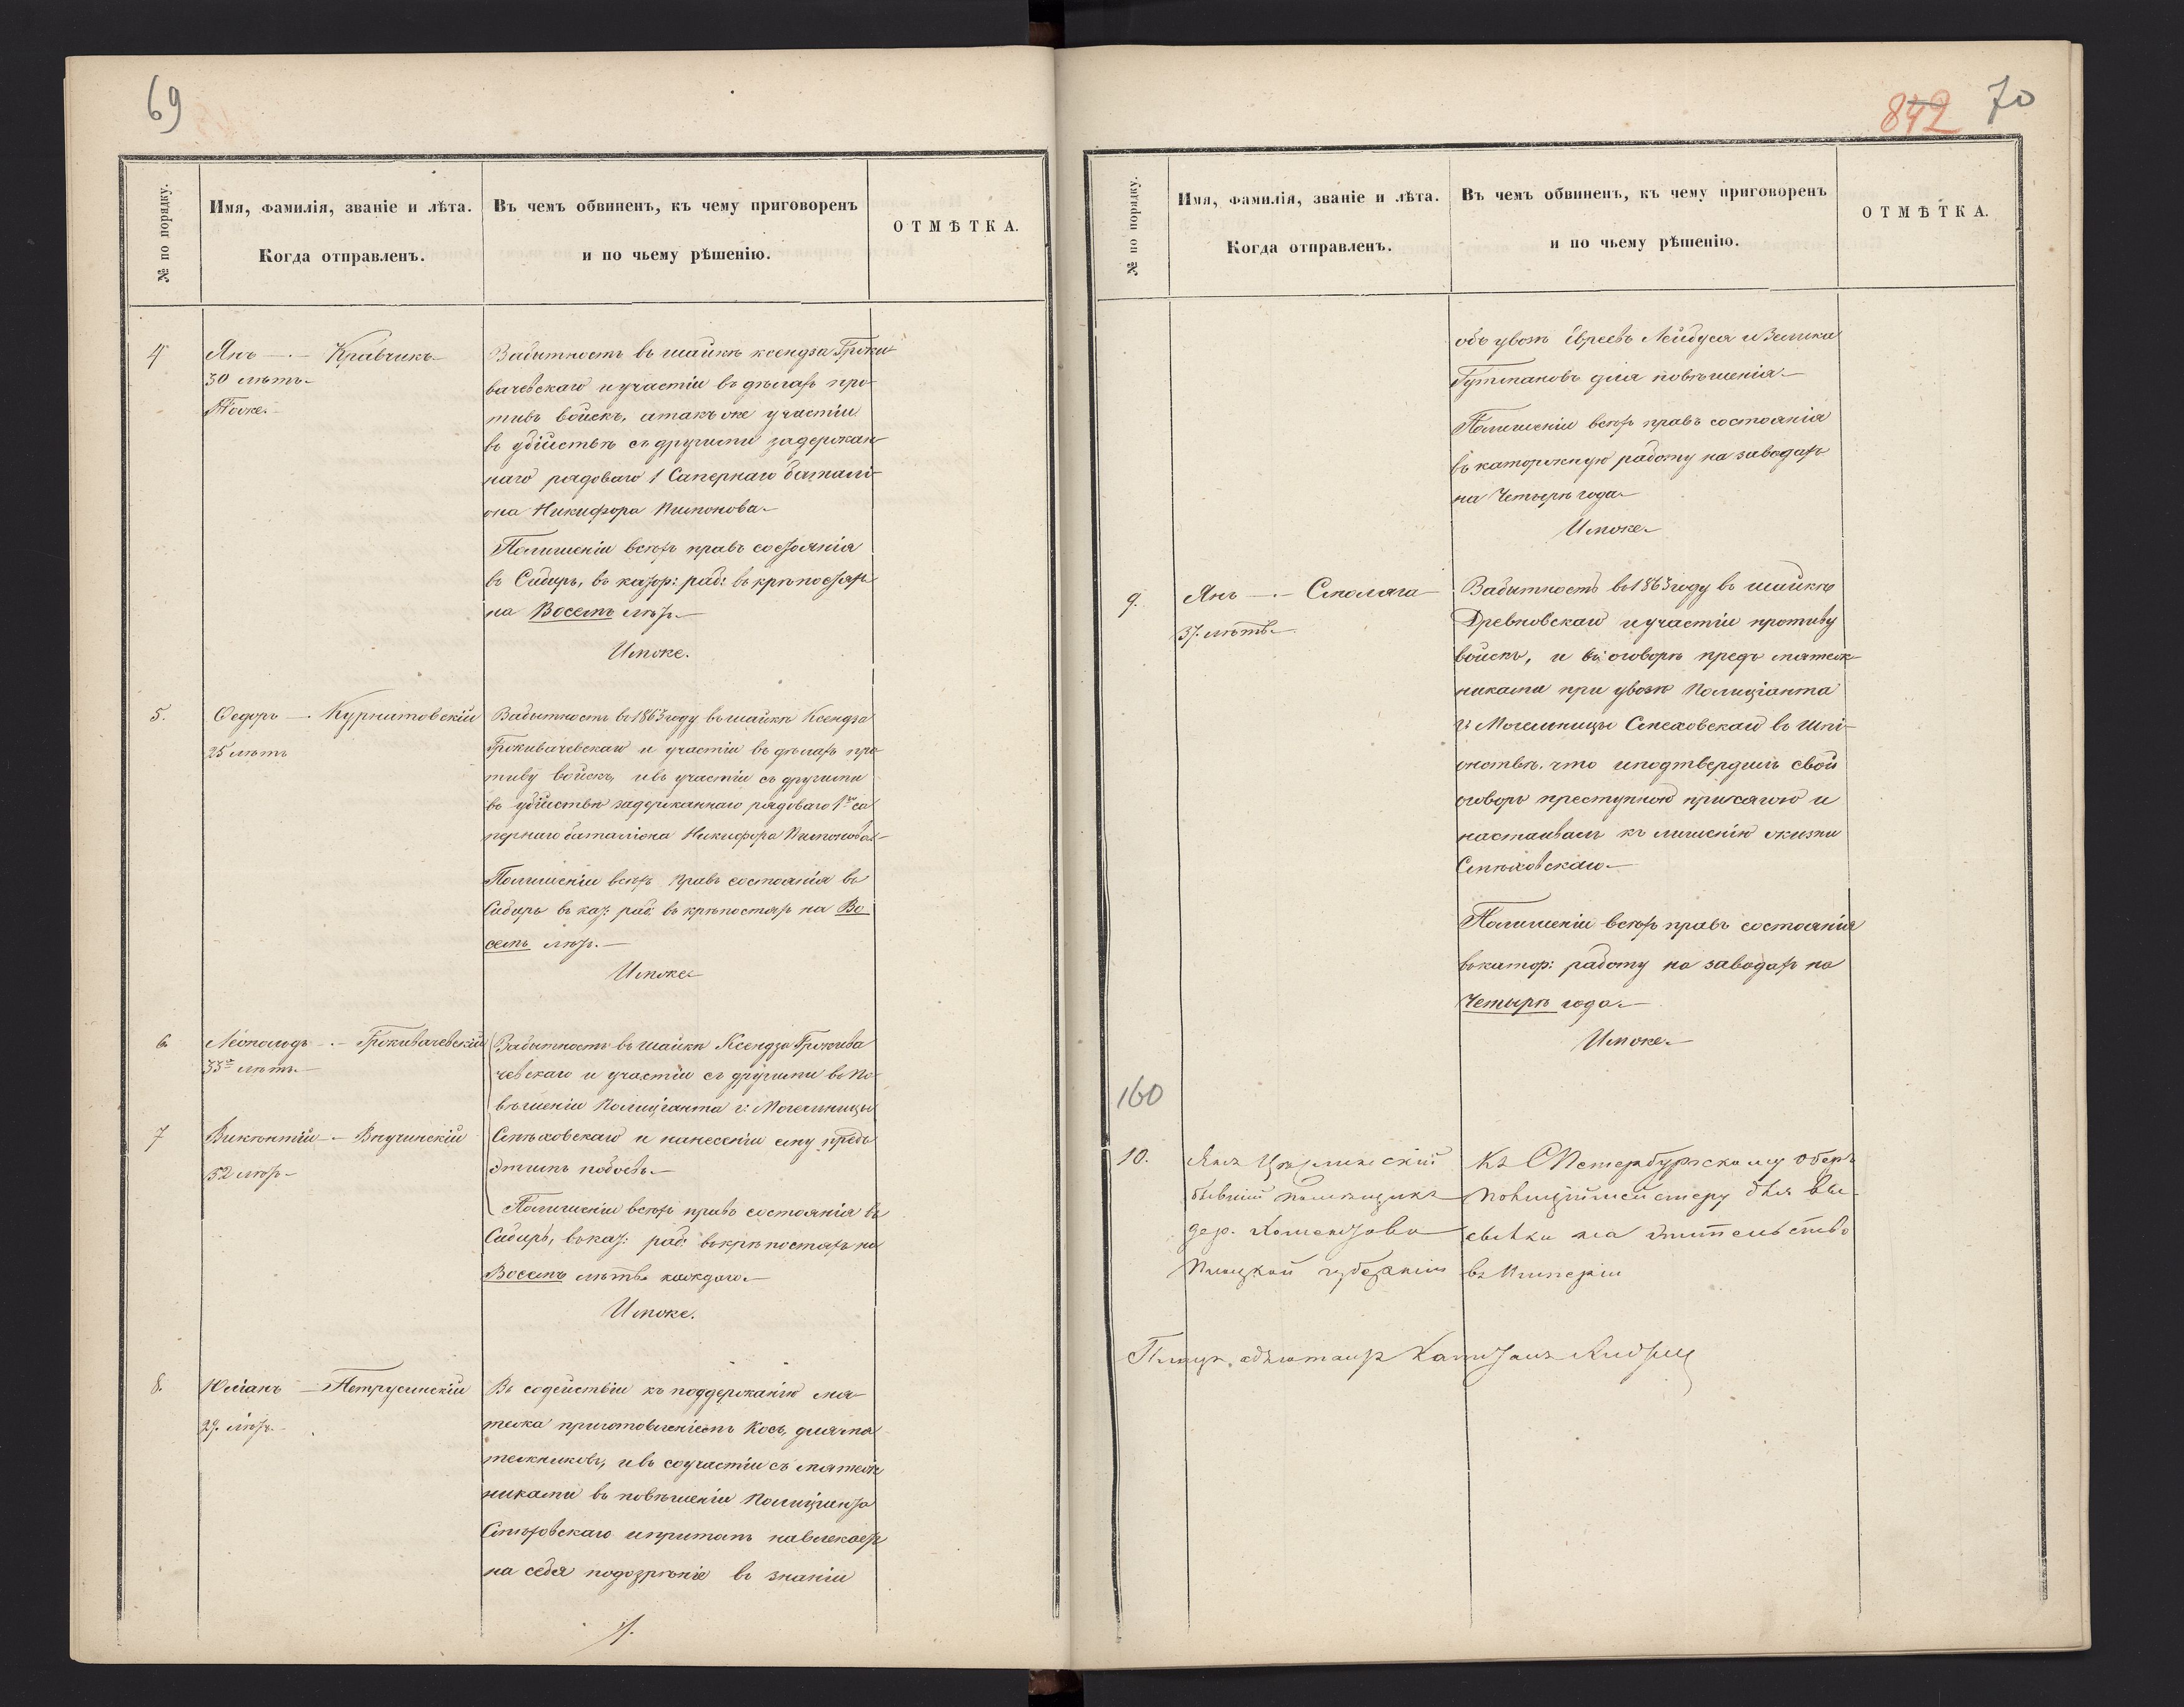 69
№ по порядку.
Имя, фамилія, званіе и лѣта.
Когда отправленъ.
Въ чемъ обвиненъ, къ чему приговоренъ
и по чьему рѣшенію.
ОТМѢТКА.
4
Янъ — Кравчикъ
30 лѣтъ
Тоже.
За бытность въ шайкѣ ксендза Гржи
вачевскаго и участіи въ дѣлахъ про
тивъ войскъ, а также участіи
въ убійствѣ съ другими задержан
наго рядоваго 1 Сапернаго баталі
она Никифора Пимонова
По лишеніи всѣхъ правъ состоянія
въ Сибирь, въ катор: раб: въ крѣпостяхъ
на Восемь лѣтъ
Имже.
5.
Федоръ — Курнатовскій
25 лѣтъ
За бытность въ 1863 году въ шайкѣ Ксендза
Гржкивачевскаго и участіи въ дѣлахъ про
тиву войскъ, и въ участіи съ другими
въ убійствѣ задержаннаго рядоваго 1го са
пернаго баталіона Никифора Пимонова
По лишеніи всѣхъ правъ состоянія въ
Сибирь въ кат: раб: въ крѣпостяхъ на Во
семь лѣтъ.
Имже
6
Леопольдъ — Гржкивачевскій
33 лѣтъ
За бытность въ шайкѣ Ксендза Гржкива
чевскаго и участіи съ другими въ по
вѣшеніи Полиціанта г: Могельницы
7
Викентій — Внучинскій
32 лѣтъ
Смѣховскаго и нанесеніи ему предъ
этимъ побоевъ
По лишеніи всѣхъ правъ состоянія въ
Сибирь, въ кат: раб: въ крѣпостяхъ на
Восемь лѣтъ каждаго
Имже.
8.
Юліанъ — Петрусинскій
27 лѣтъ
Въ содействіи къ поддержанію мя
тежа приготовленіемъ Косъ, для мя
тежниковъ, и въ соучастіи съ мятеж
никами въ повѣшеніи Полиціанта
Смѣховскаго и притомъ навлекаетъ
на себя подозрѣніе въ знаніи
842 70
№ по порядку.
Имя, фамилія, званіе и лѣта.
Когда отправленъ.
Въ чемъ обвиненъ, къ чему приговоренъ
и по чьему рѣшенію.
ОТМѢТКА.
объ увозѣ Евреевъ Лейбуся и Зелика
Гутмановъ для повѣшенія
По лишеніи всѣхъ правъ состоянія
въ каторжную работу на заводахъ
на Четыре года
Имже
9.
Янъ — Смоляга
37 лѣтъ
За бытность въ 1863 году въ шайкѣ
Древновскаго и участіи противу
войскъ, и въ оговорѣ предъ мятеж
никами при увозѣ Полиціанта
г: Могельницы Смеховскаго въ шпі
онствѣ, что и подтвердилъ свой
оговоръ преступною присягою и
настаивалъ къ лишенію жизни
Смѣховскаго
По лишеніи всѣхъ правъ состоянія
въ катор: работу на заводахъ на
Четыре года
Имже
160
10.
бывшій помѣщикъ
дер.
губерніи
Къ СПетербургскому Оберъ
полицiймейстеру для вы
сылки на жительство
въ Имперіи
Плацъ адъютантъ Капитанъ